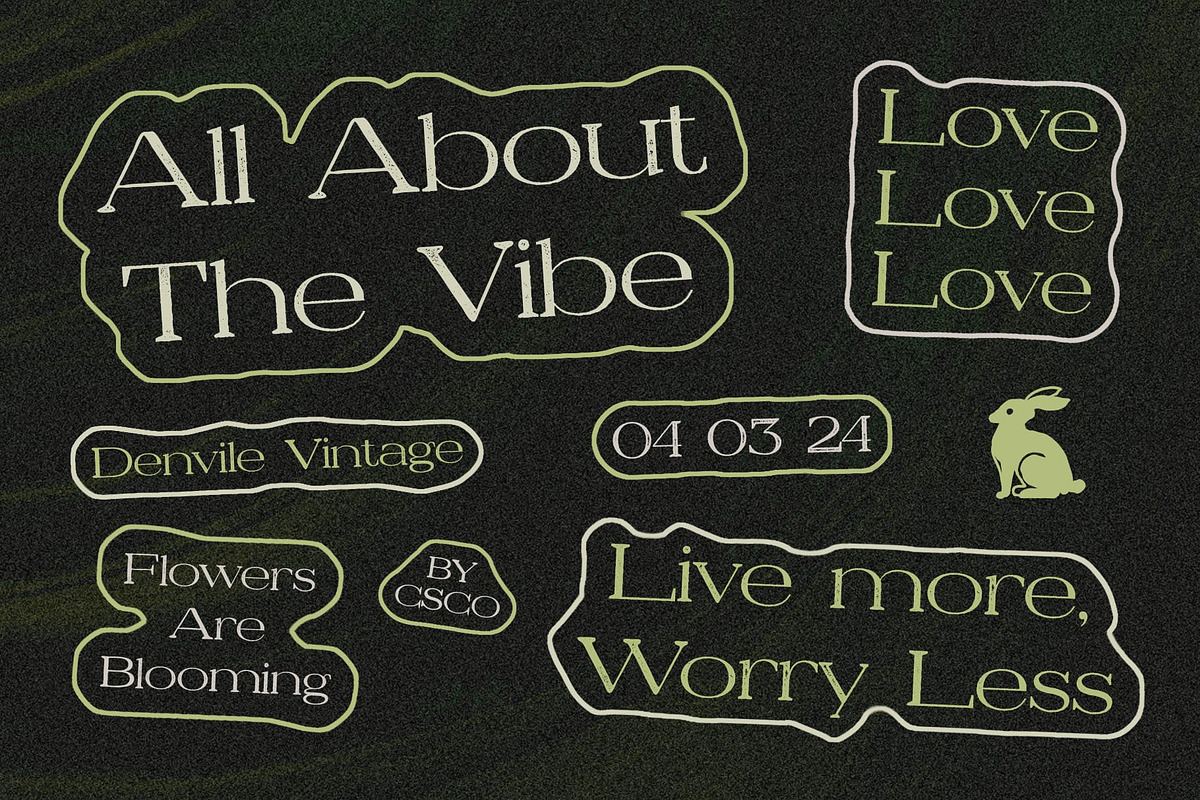 All About
The Vibe
Love
Love
Love
Denvile Vintage
04 03 24
Flowers
Are
Blooming
BY
CSCO
Live more,
Worry Less